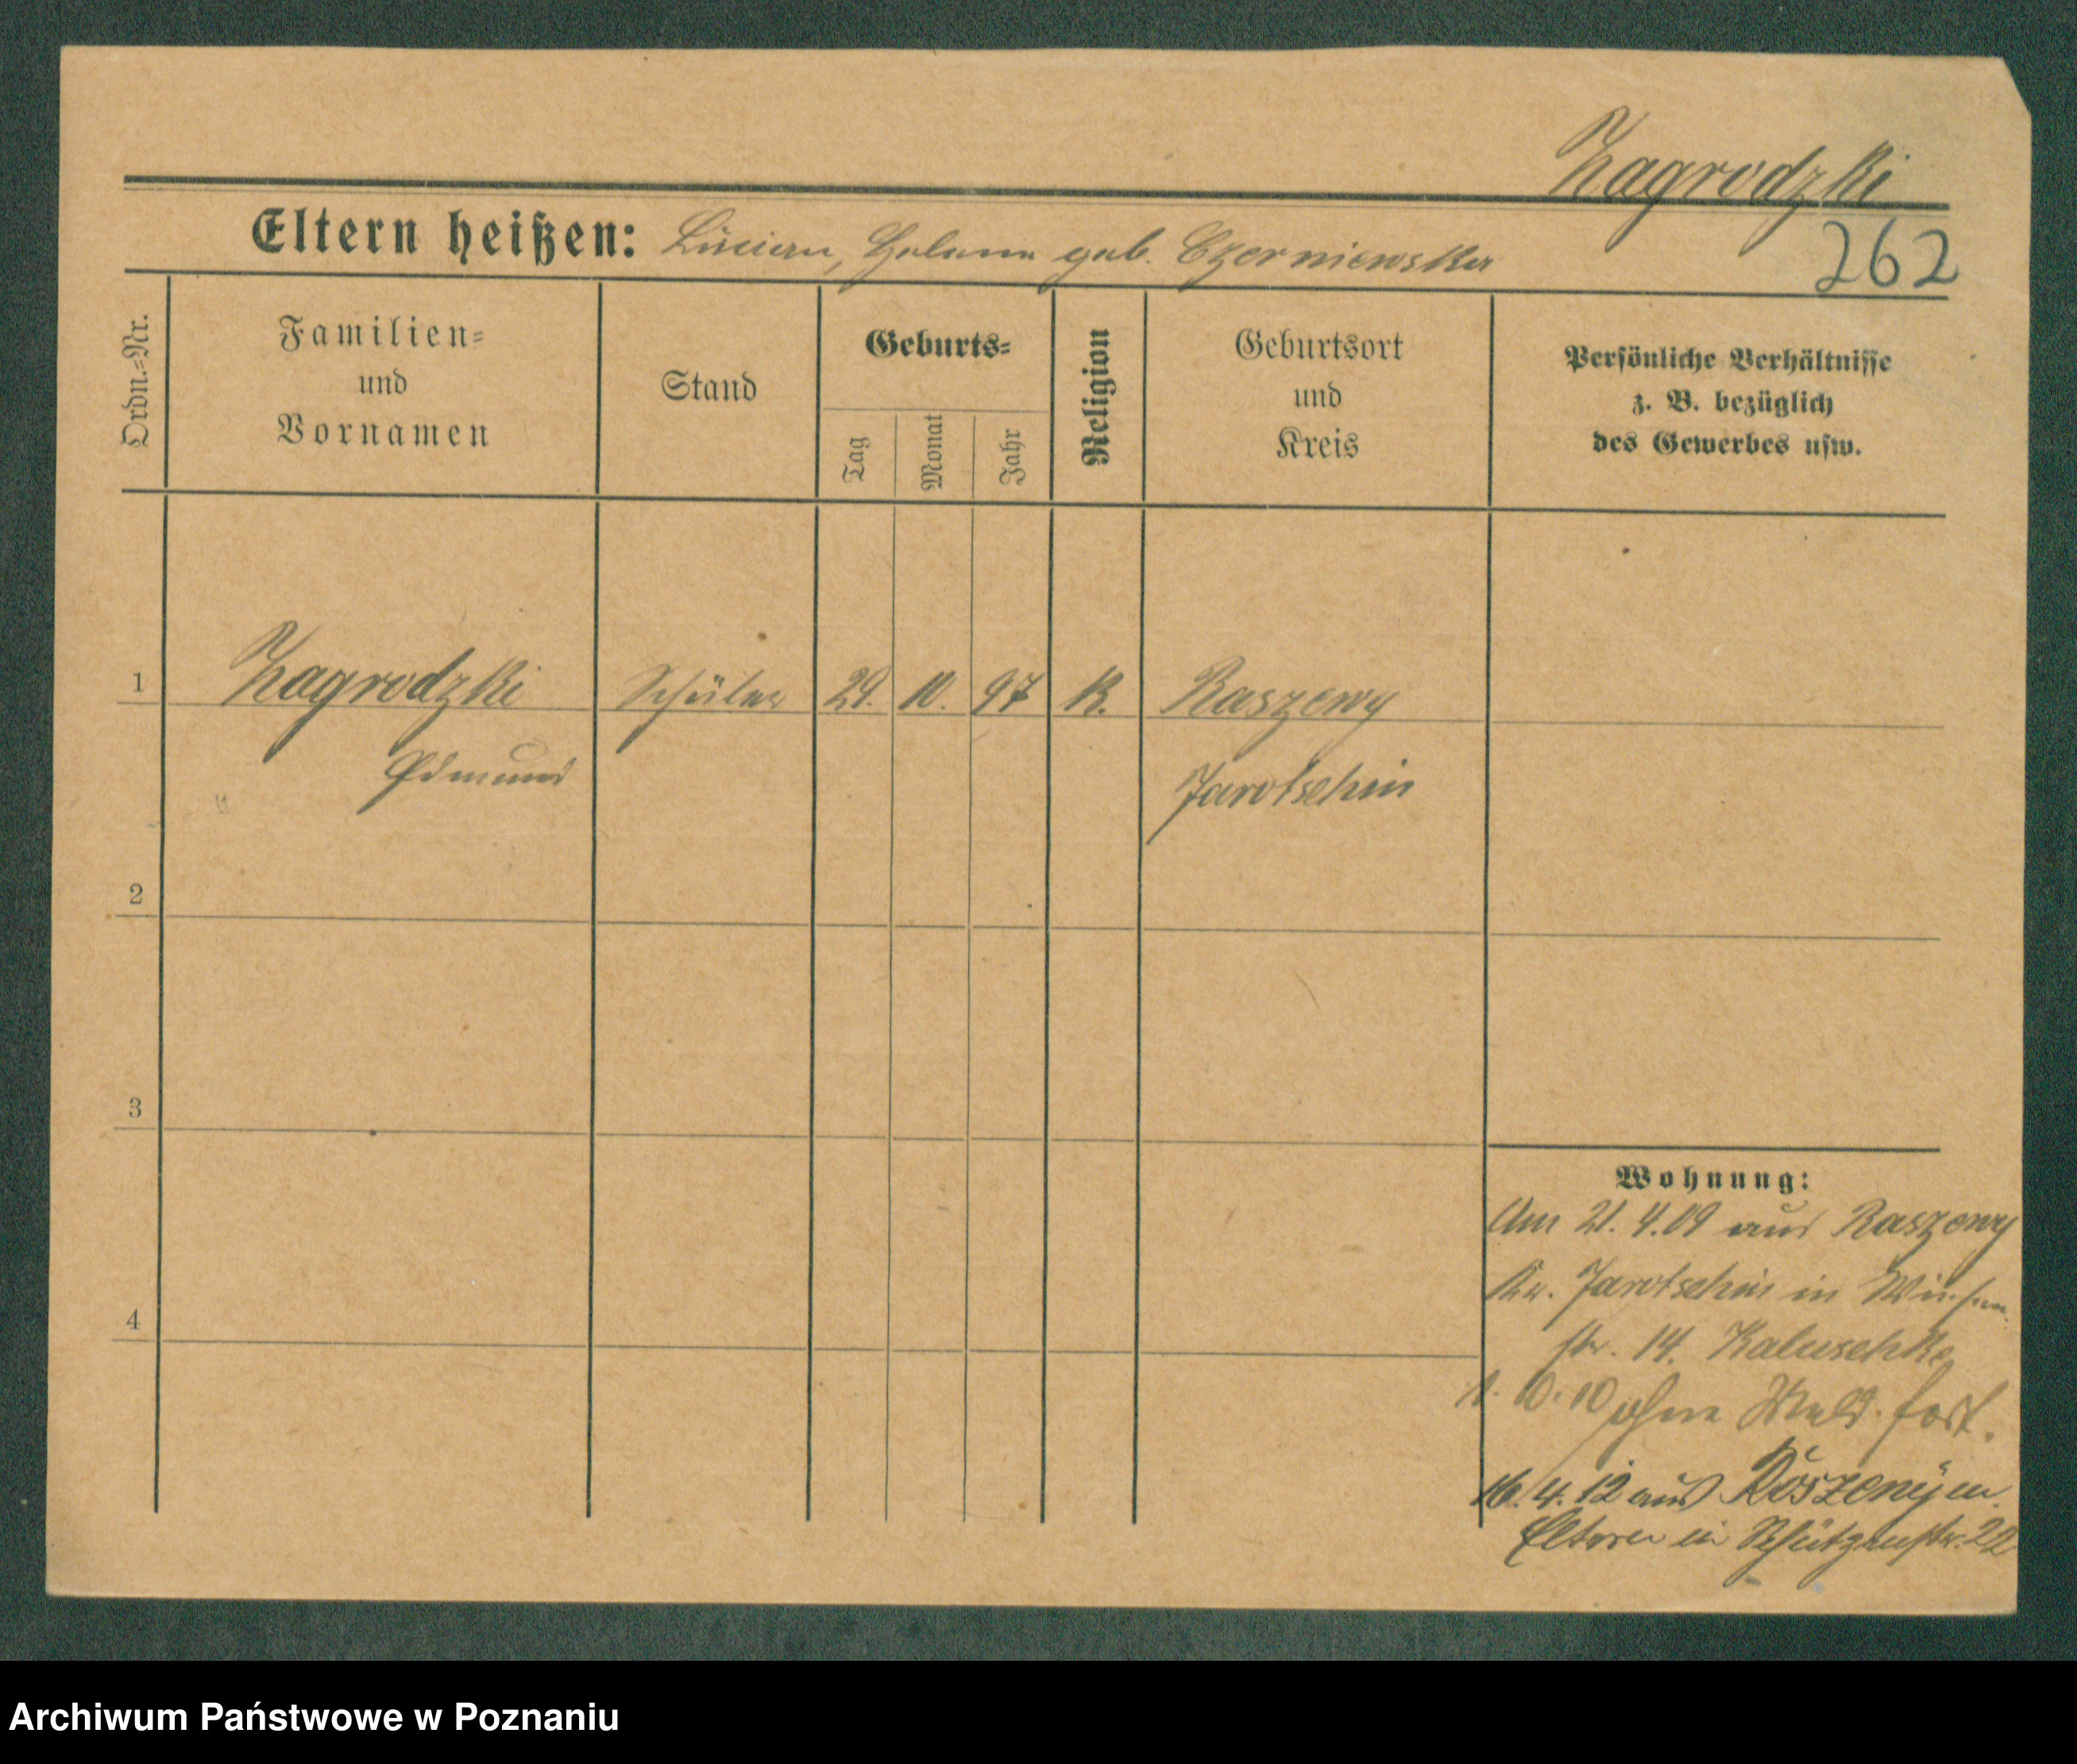 Zagrodzki
262
Eltern heißen: Lucian, Helena geb. Czerniewska
Ordn.=Nr.
Familien=
und
Vornamen
Stand
Geburts=
Tag
Monat
Jahr
Religion
Geburtsort
und
Kreis
Persönliche Verhältnisse
z. B. bezüglich
des Gewerbes usw.
1 Zagrodzki Schüler 29. 10. 97 K. Raszewy
Edmund Jarotschin
2
3
4
Wohnung:
Am 21. 4. 09 aus Raszewy
Kr. Jarotschin in
str. 14. Kaluschke
1. 10. 10 ohne Meld. fort.
16. 4. 12 aus
Eltern in Schützenstr. 22
Archiwum Państwowe w Poznaniu